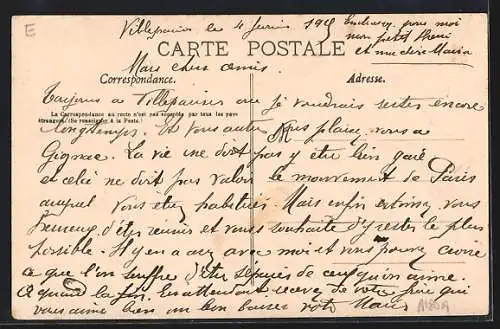 E
Villeparisis le 4 Juin 1915
Embrassez pour moi
mon petit Henri
et ma chère Maria
CARTE POSTALE
Mes chers amis
Correspondance.
Adresse.
Toujours à Villeparisis où je voudrais rester encore
La Correspondance au recto n'est pas acceptée par tous les pays
étrangers (Se renseigner à la Poste.)
longtemps. Et vous autres vous plaisez vous à
Gagnac. La vie ne doit pas y être bien gaie
et celle ne doit pas valoir le mouvement de Paris
auquel vous étiez habitués. Mais enfin estimez vous
heureux d'être réunis et vous souhaite d'y rester le plus
possible. Il y en a avec moi et vous pouvez croire
ce que l'on souffre d'être séparés de ceux qu'on aime.
A quand la fin. En attendant recevez de votre qui
vous aime bien un bon baiser votre
A180A